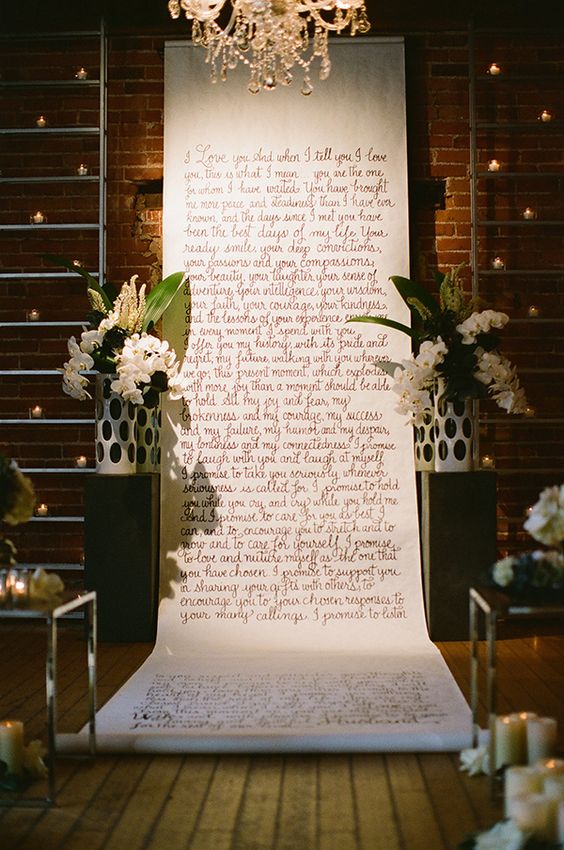 I Love you And when I tell you I love
you, this is what I mean... you are the one
for whom I have waited. You have brought
me more peace and steadiness than I have ever
known, and the days since I met you have
been the best days of my life. Your
ready smile, your deep convictions,
your passions and your compassions,
your beauty, your laughter your sense of
adventure, your intelligence your wisdom,
your faith, your courage, your kindness,
and the lessons of your experience,
in every moment I spend with you
I offer you my history, with its pride and
regret, my future, walking with you wherever
we go, this present moment, which explodes
with more you than a moment should be able
to hold. All my joy and fear, my
brokenness and my courage, my success
and my failure, my humor and my despair,
my loneliness and my connectedness. I promise
to laugh with you and laugh at myself
I promise to take you seriously whenever
seriousness is called for I promise to hold
you while you cry, and cry while you hold me
And I promise to care for you as best I
can, and to encourage you to stretch and to
grow and to care for yourself I promise
to love and nurture myself as the one that
you have chosen I promise to support you
in sharing your gifts with others, to
encourage you to your chosen responses to
your many callings. I promise to listen